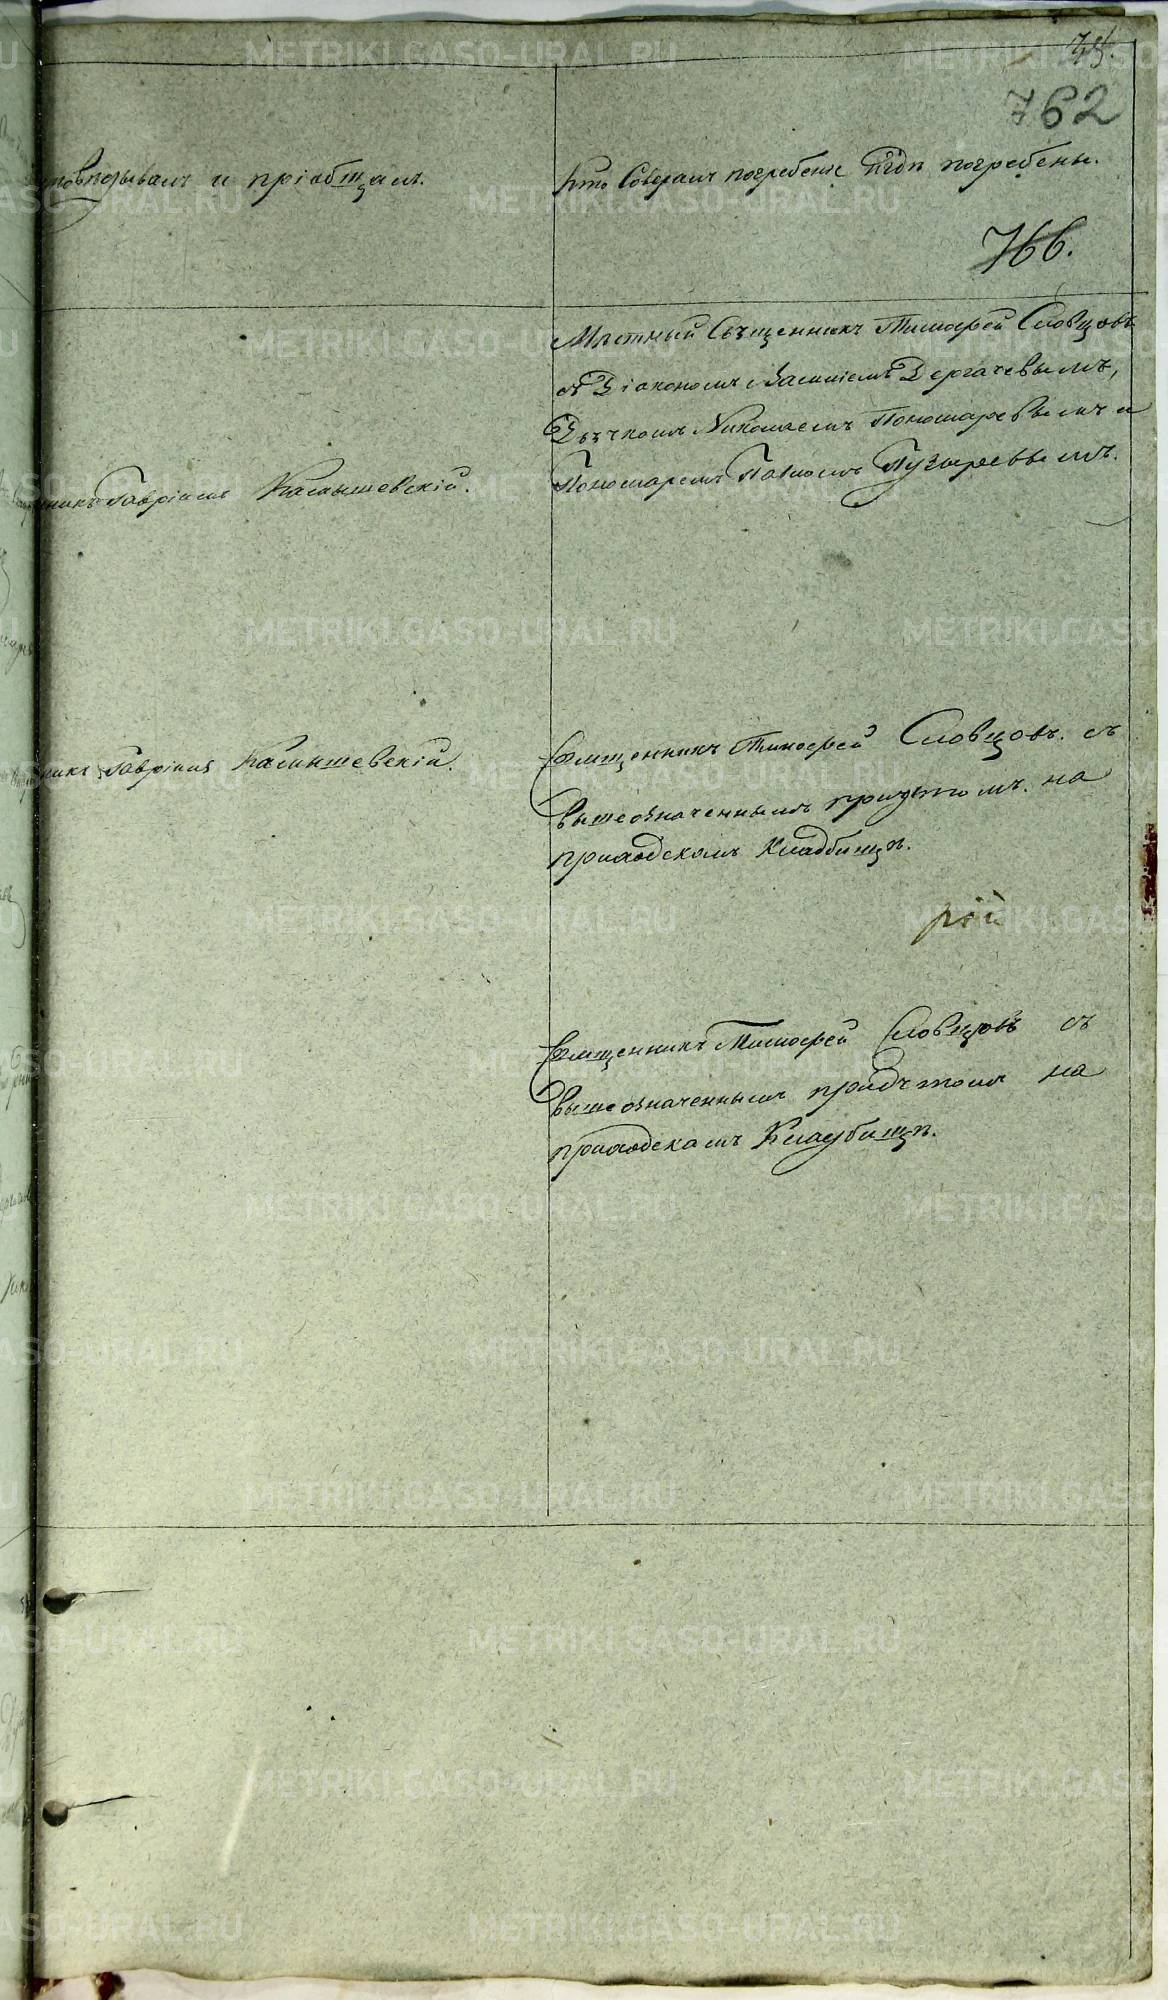 762
исповѣдывалъ и пріобщалъ.
Кто Совершалъ погребеніе и гдѣ погребены.
766.
Мѣстный Священникъ Тимофей Словцовъ
съ Діакономъ Василіемъ Дергачевымъ,
Дьячкомъ Николаемъ Пономаревымъ и
Пономаремъ Павломъ Пузыревымъ.
Гавріилъ Камышевскій.
Священникъ Тимофей Словцовъ. съ
вышеозначеннымъ причтомъ. на
приходскомъ Кладбищѣ.
Гавріилъ Камышевскій.
рѳіі
Священникъ Тимофей Словцовъ съ
вышеозначеннымъ причтомъ на
приходскомъ Кладбищѣ.
METRIKI.GASO-URAL.RU